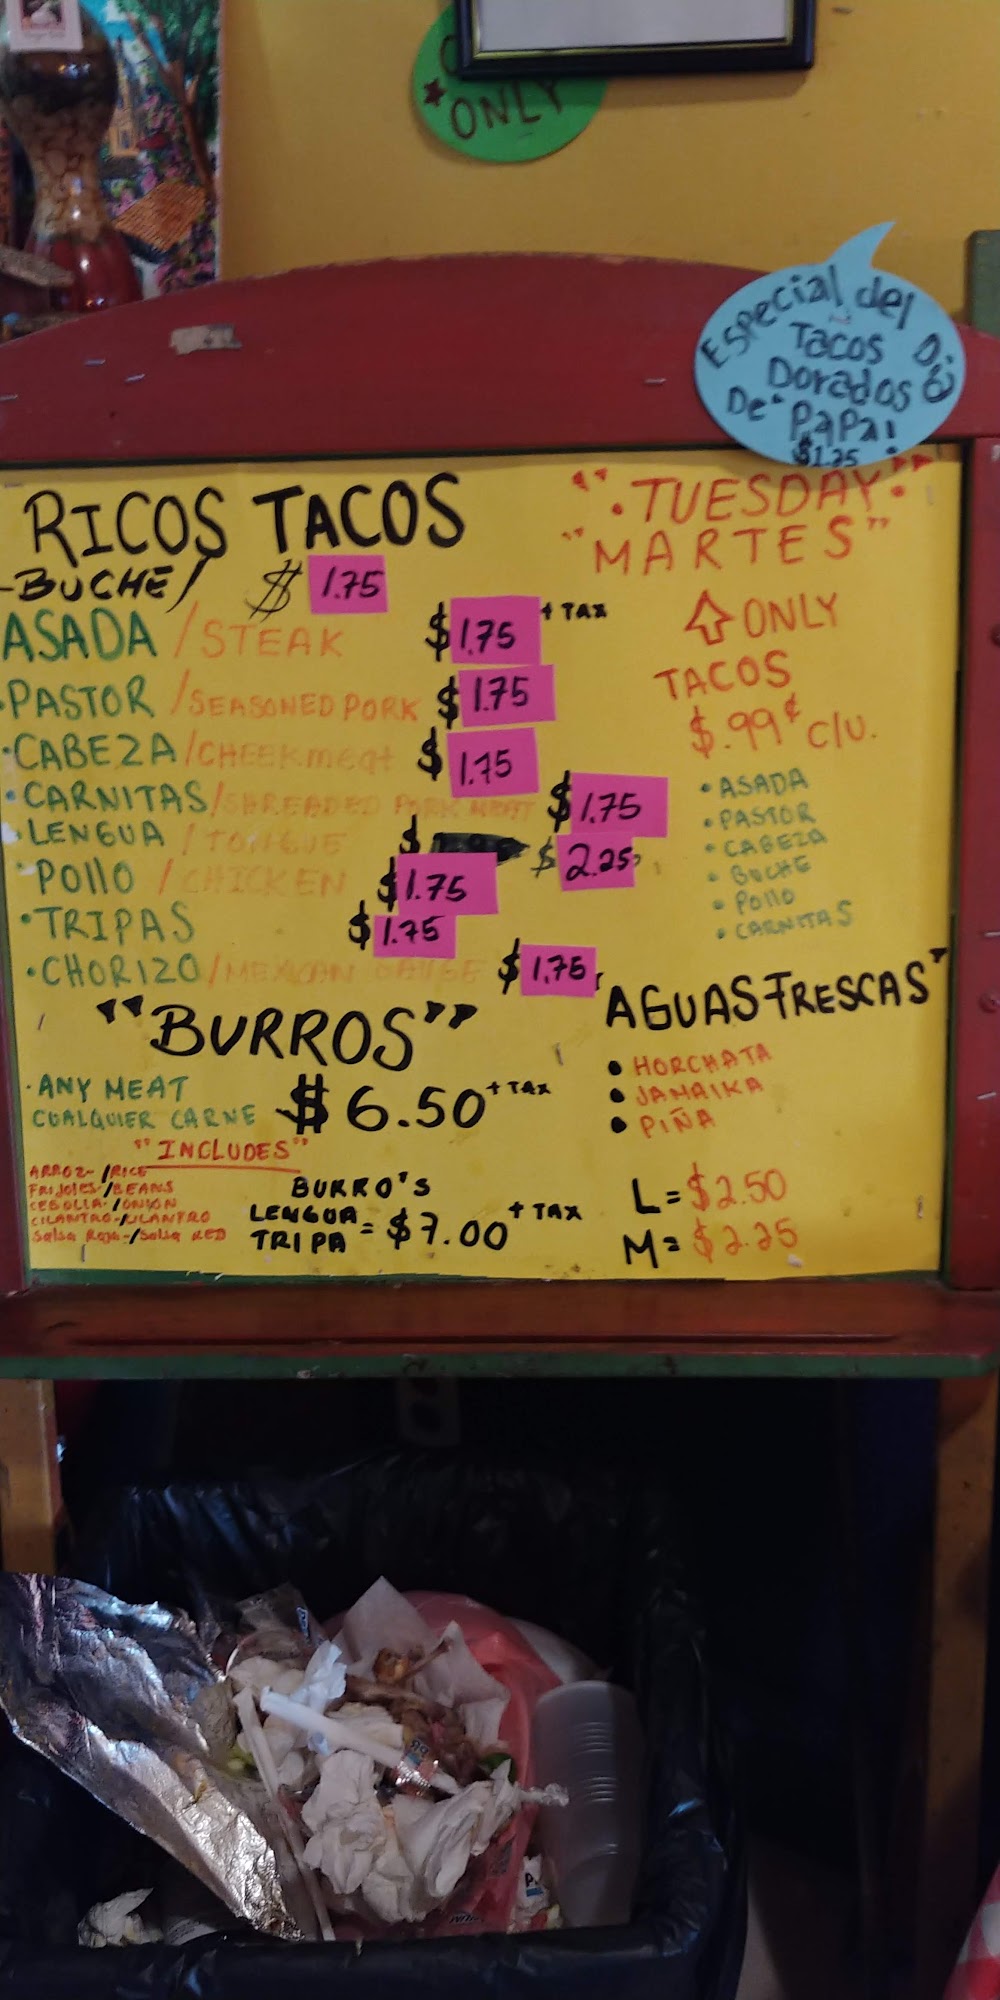 ONLY
Especial del Dia
Tacos
Dorados
De PaPa!
$1.25
RICOS TACOS
-BUCHE/ $ 1.75
ASADA / STEAK $ 1.75 + TAX
•PASTOR / SEASONED PORK $ 1.75
•CABEZA / CHEEK meat $ 1.75
•CARNITAS / SHREADED PORK MEAT $ 1.75
LENGUA / TONGUE $ $ 2.25
•Pollo / CHICKEN $ 1.75
•TRIPAS $ 1.75
•CHORIZO / MEXICAN $ 1.75
"BURROS"
•ANY MEAT
CUALQUIER CARNE $ 6.50 + TAX
"INCLUDES"
ARROZ-/RICE
FRIJOLES-/BEANS
CEBOLLA-/ONION
CILANTRO-/CILANTRO
Salsa Roja-/Salsa RED
BURRO'S
LENGUA
TRIPA = $7.00 + TAX
"•TUESDAY•"
"MARTES"
ONLY
TACOS
$.99¢ c/u.
•ASADA
•PASTOR
•CABEZA
•BUCHE
•Pollo
•CARNITAS
AGUAS FRESCAS"
• HORCHATA
• JAMAIKA
• PIÑA
L = $2.50
M = $2.25